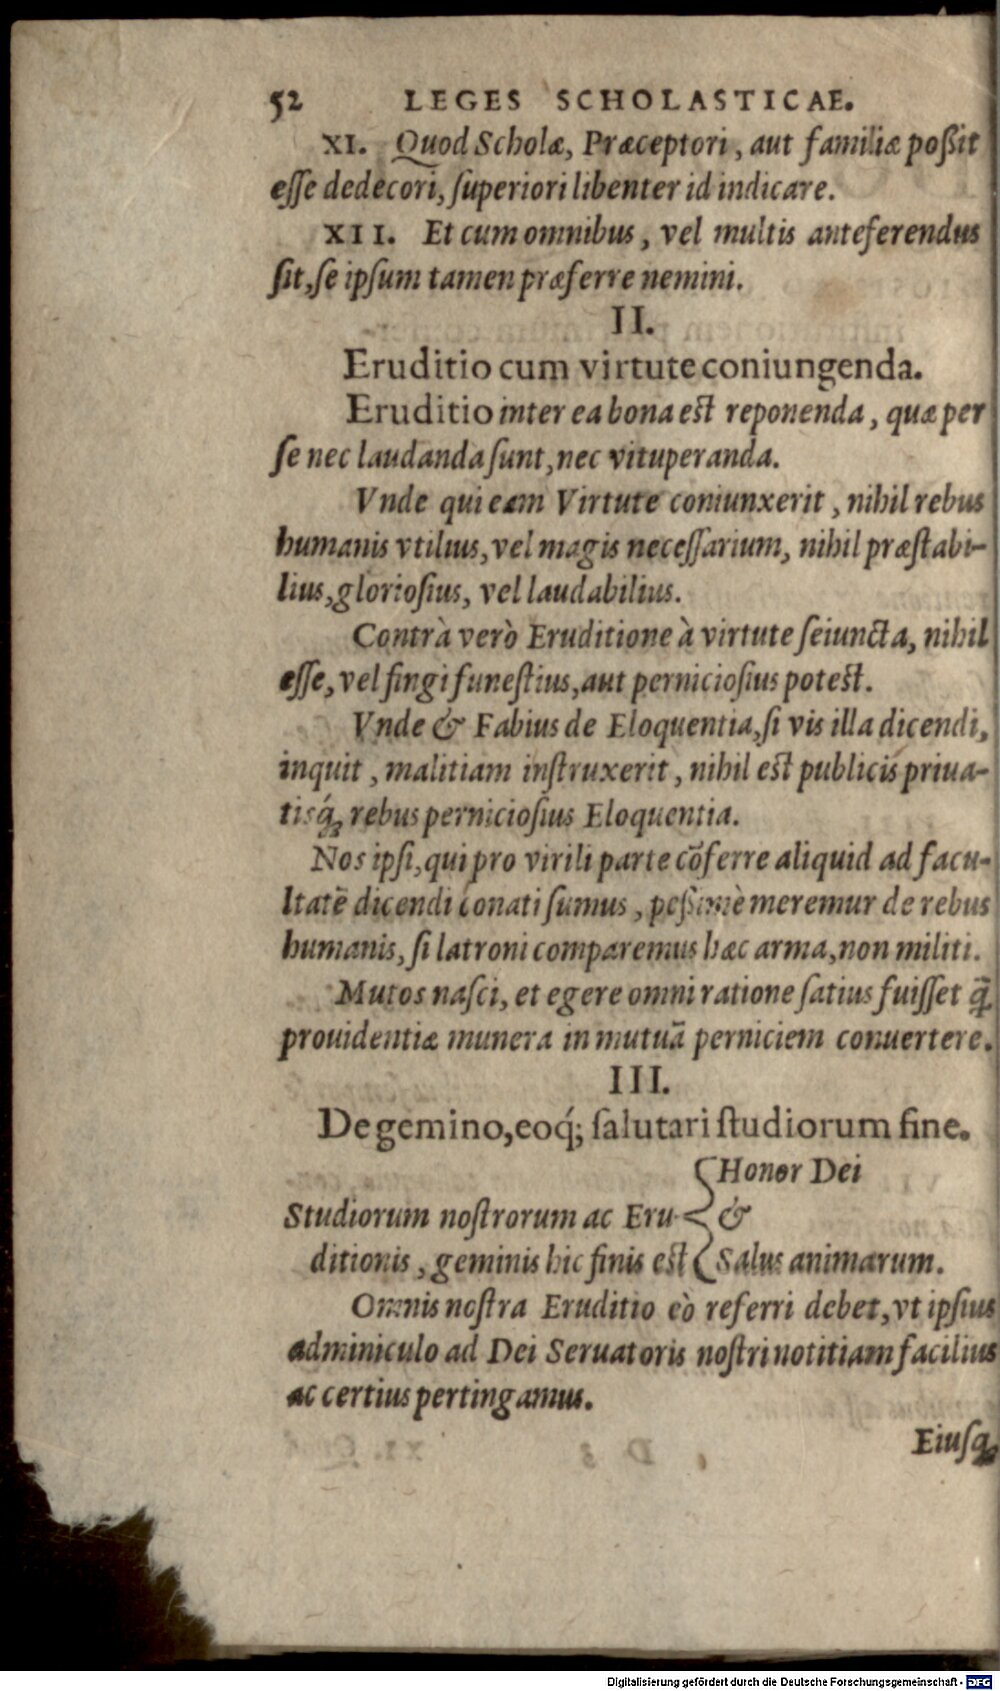 52 LEGES SCHOLASTICAE.
XI. Quod Scholæ, Præceptori, aut familiæ poßit
eſſe dedecori, ſuperiori libenter id indicare.
XII. Et cum omnibus, vel multis anteferendus
ſit, ſe ipſum tamen præferre nemini.
II.
Eruditio cum virtute coniungenda.
Eruditio inter ea bona eſt reponenda, quæ per
ſe nec laudanda ſunt, nec vituperanda.
Vnde qui eam Virtute coniunxerit, nihil rebus
humanis vtilius, vel magis neceſſarium, nihil præſtabi-
lius, glorioſius, vel laudabilius.
Contrà verò Eruditione à virtute ſeiuncta, nihil
eſſe, vel fingi funeſtius, aut pernicioſius poteſt.
Vnde & Fabius de Eloquentia, ſi vis illa dicendi,
inquit, malitiam inſtruxerit, nihil eſt publicis priua-
tisq́ꝫ rebus pernicioſius Eloquentia.
Nos ipſi, qui pro virili parte cōferre aliquid ad facu-
ltatē dicendi conati ſumus, peßimè meremur de rebus
humanis, ſi latroni comparemus hæc arma, non militi.
Mutos naſci, et egere omni ratione ſatius fuiſſet q̄
prouidentiæ munera in mutuā perniciem conuertere.
III.
De gemino, eoq́; ſalutari ſtudiorum fine.
Honor Dei
Studiorum noſtrorum ac Eru- &
ditionis, geminis hic finis eſt Salus animarum.
Omnis noſtra Eruditio eò referri debet, vt ipſius
adminiculo ad Dei Seruatoris noſtri notitiam facilius
ac certius pertingamus.
Eiuſqꝫ
Digitalisierung gefördert durch die Deutsche Forschungsgemeinschaft - DFG